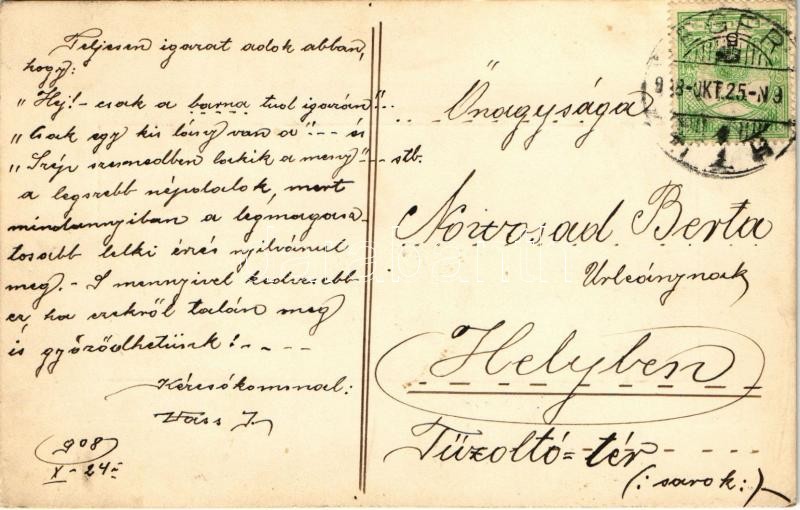 Teljesen igazat adok abban,
hogy:
"Hej! - csak a barna tud igazán"...
"Csak egy kis lány van a" --- és
"Szép szemedben lakik a meny" --- stb.
a legszebb népdalok, mert
mindannyiban a legmagasz-
tosabb lelki érzés nyilvánul
meg. - S mennyivel kedvesebb
ez, ha ezekről talán meg
is győződhetünk! - - - -
Kézcsókommal:
Vass J.
908
X - 24
EGER
908-OKT.25.-N9
Őnagysága
Berta
Urleánynak
Helyben
Tűzoltó=tér
(: sarok :)